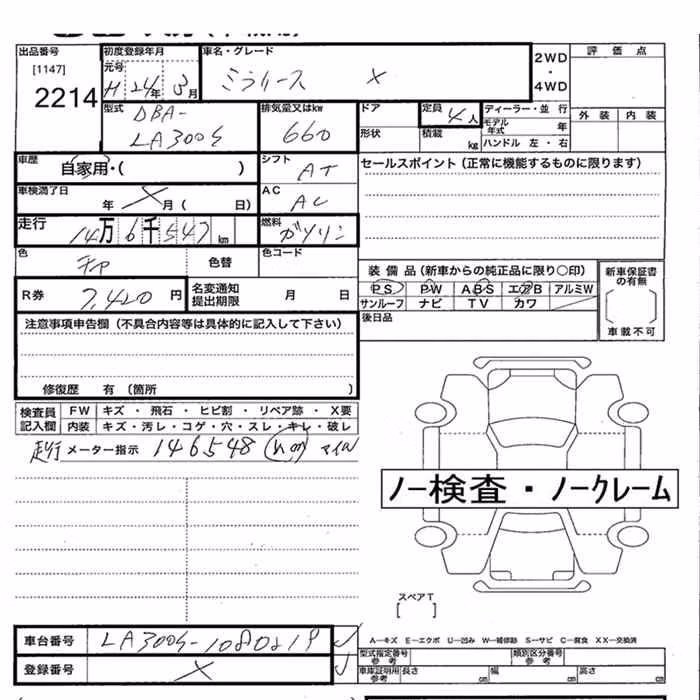 出品番号
[1147]
2214
初度登録年月
元号
H 24年 3月
車名・グレード
ミライース X
2WD
・
4WD
評価点
外装 内装
型式
DBA-
LA300S
排気量又はkw
660
ドア
形状
定員
4人
積載 kg
ディーラー・並行
モデル年式 年
ハンドル 左・右
車歴
自家用・( )
シフト
AT
セールスポイント(正常に機能するものに限ります)
車検満了日
年 月( 日)
AC
AC
走行
14万6千547km
燃料
ガソリン
色
色替
色コード
装備品(新車からの純正品に限り〇印)
PS PW ABS エアB アルミW
サンルーフ ナビ TV カワ
後日品
新車保証書の有無
車載不可
R券
7,420円
名変通知
提出期限
月 日
注意事項申告欄(不具合内容等は具体的に記入して下さい)
修復歴 有(箇所 )
検査員
記入欄
FW キズ・飛石・ヒビ割・リペア跡・X要
内装 キズ・汚レ・コゲ・穴・スレ・キレ・破レ
走行 メーター指示 146548 (km) マイル
ノー検査・ノークレーム
スペアT
[ ]
車台番号
LA300S-1080219
登録番号
X
A—キズ E—エクボ U—凹み W—補修跡 S—サビ C—腐食 XX—交換済
型式指定番号
参考
類別区分番号
参考
車庫証明用
参考
長さ cm 幅 cm 高さ cm